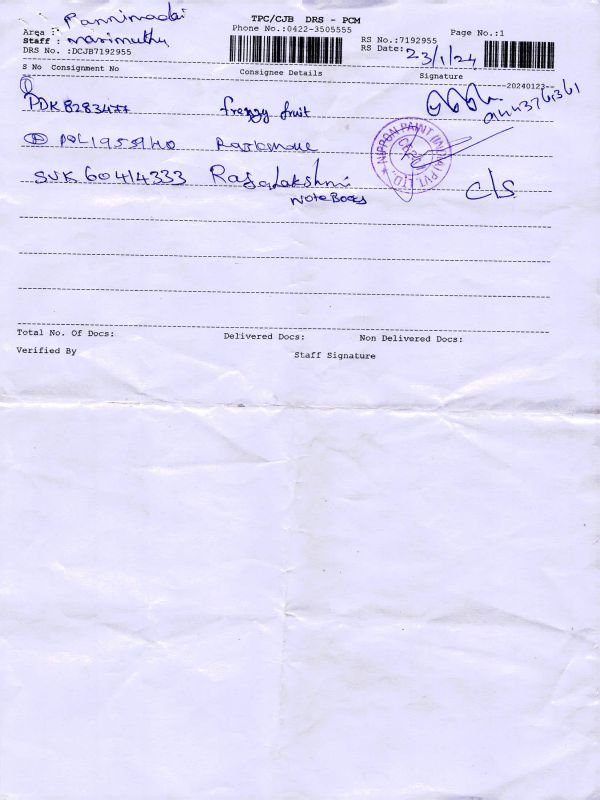 TPC/CJB DRS - PCM
Area : Pannimadai
Phone No.:0422-3505555
Page No.:1
Staff : marimuthu
RS No.:7192955
DRS No. :DCJB7192955
RS Date: 23/1/24
S No Consignment No
Consignee Details
Signature
--20240123--
1
PDK 8283477
frenzy fruit
2
NIPPON PAINT (INDIA) PVT. LTD.
SVK 60414333
Rajalakshmi
NoteBooks
C/S
Total No. Of Docs:
Delivered Docs:
Non Delivered Docs:
Verified By
Staff Signature